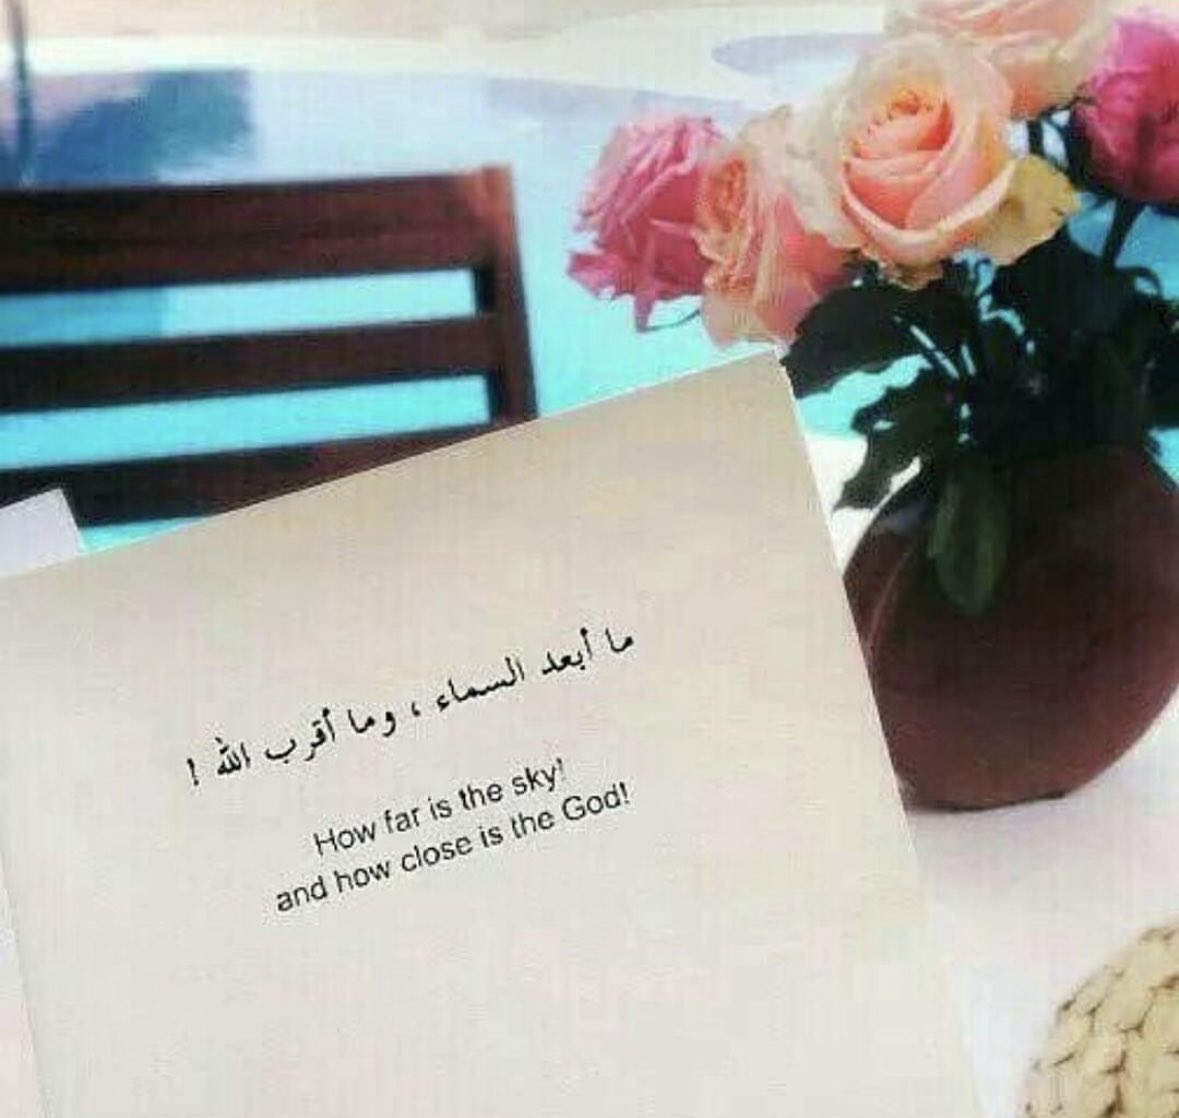 ما أبعد السماء ، وما أقرب الله !
How far is the sky!
and how close is the God!